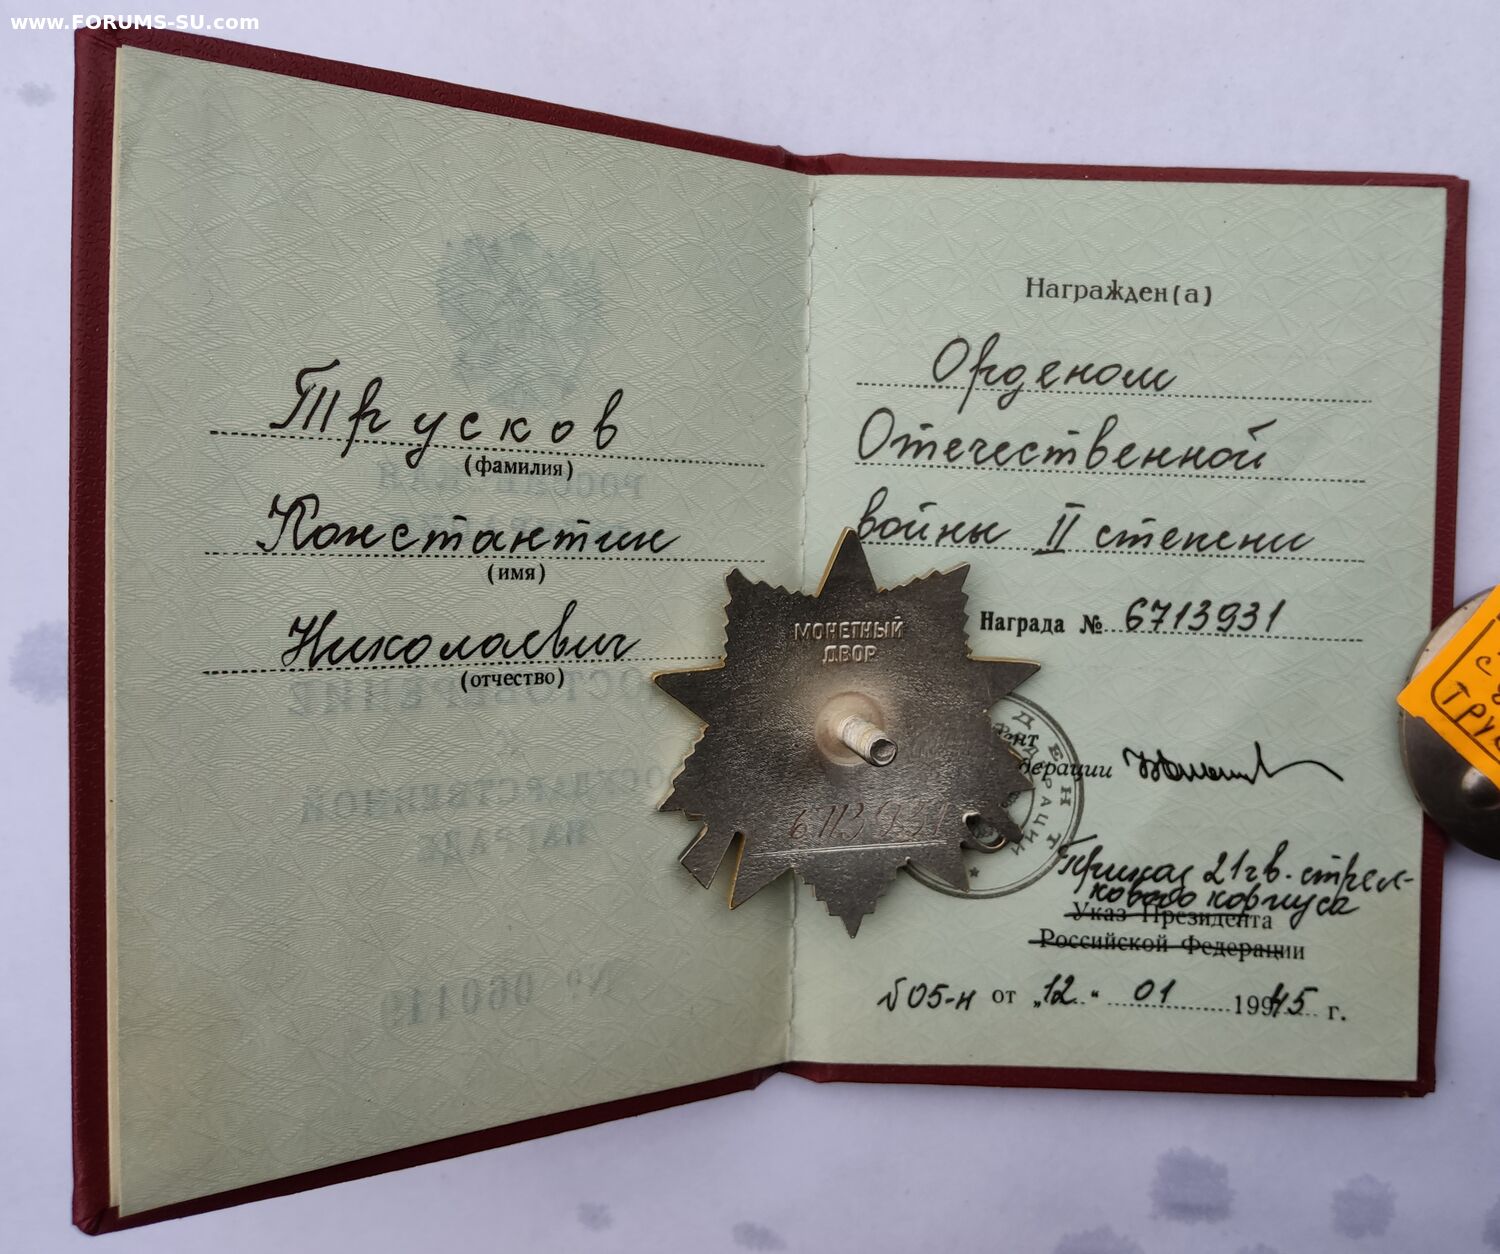 www.FORUMS-SU.com
Трусков
(фамилия)
Константин
(имя)
Николаевич
(отчество)
Награжден(а)
Орденом
Отечественной
войны II степени
Награда № 6713931
МОНЕТНЫЙ
ДВОР
6713931
дерации
Приказ 21 гв. стрел-
кового корпуса
Указ Президента
Российской Федерации
№05-н от „12“ 01 1945 г.
РОССИЙСКАЯ
ГОСУДАРСТВЕННОЙ
НАГРАДЕ
№ 060119
ТРУС